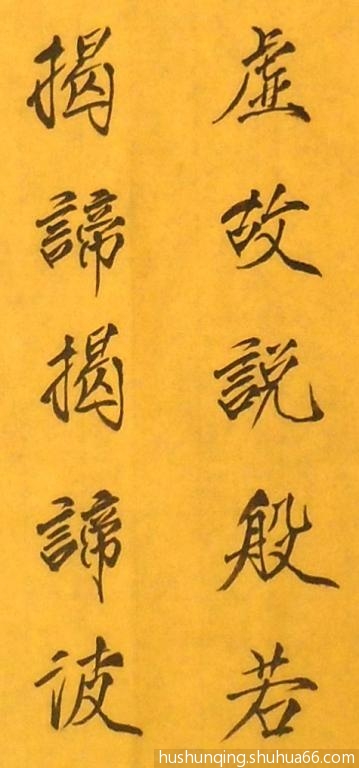 虛故說般若
揭諦揭諦波
hushunqing.shuhua66.com